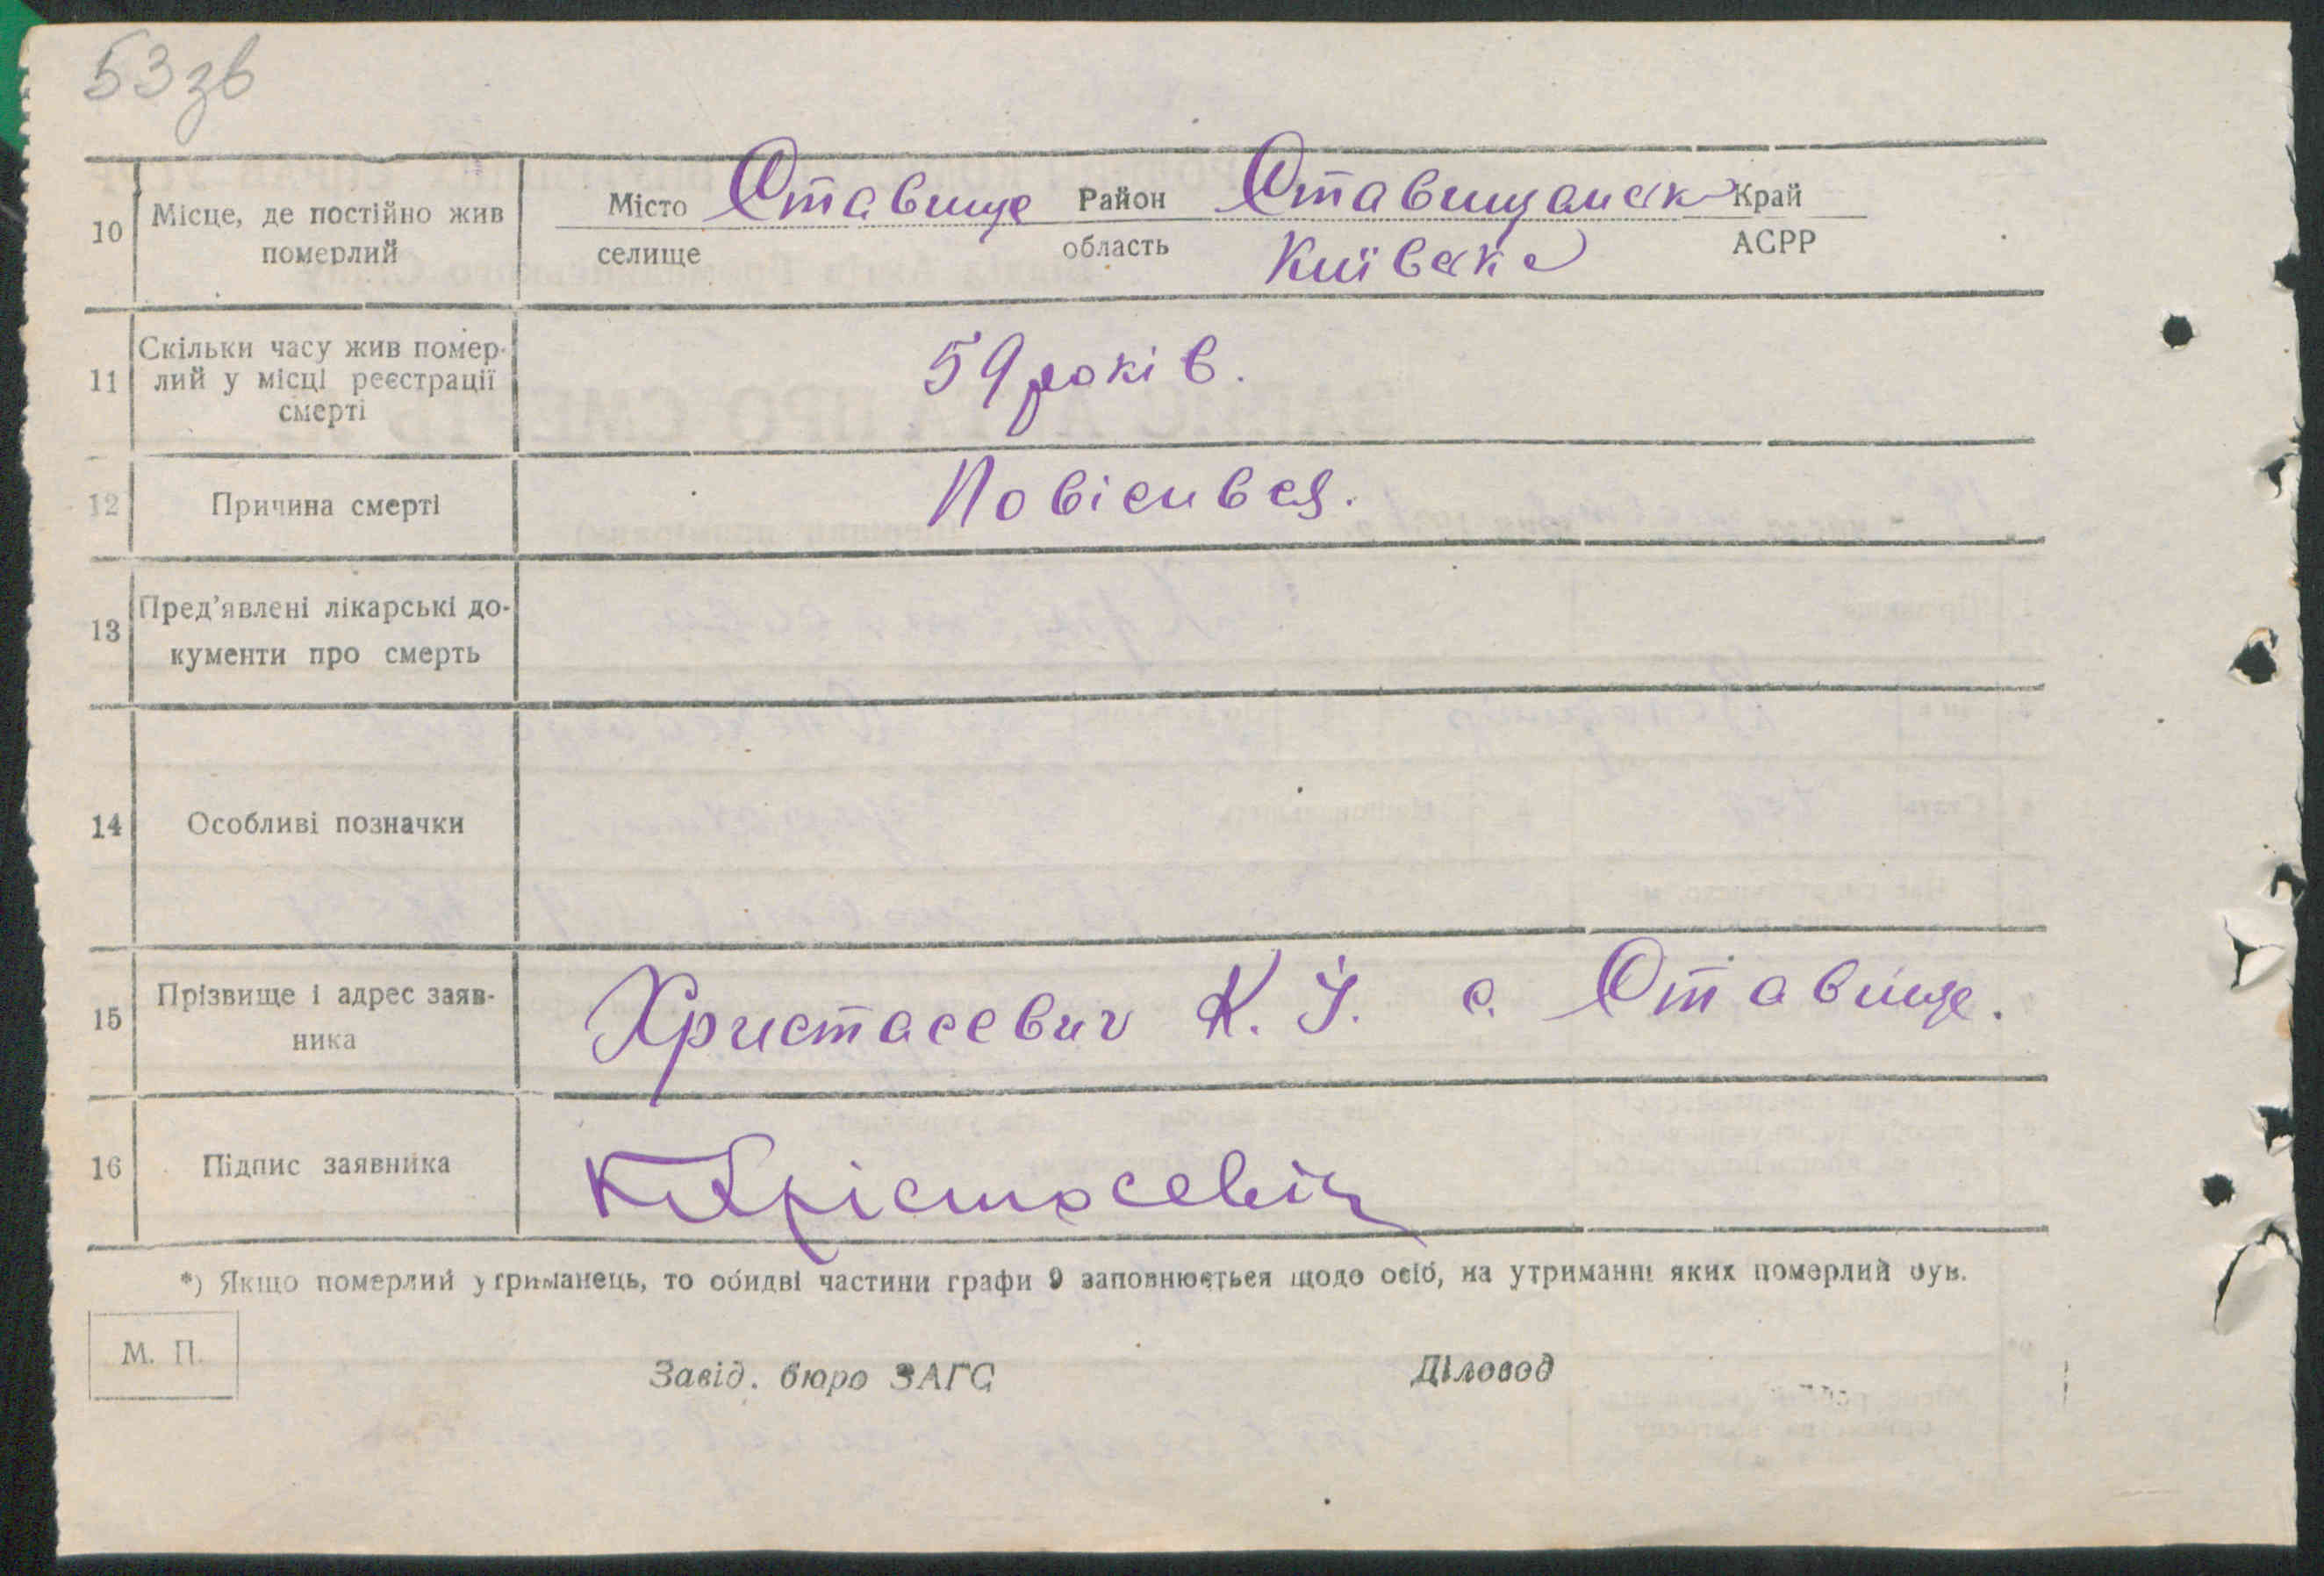 53 зв
10 Місце, де постійно жив померлий
Місто Ставище Район Ставищанськ Край
селище область Київська АСРР
11 Скільки часу жив помер-
лий у місці реєстрації
смерті
59 років.
12 Причина смерті Повісився.
13 Пред'явлені лікарські до-
кументи про смерть
14 Особливі позначки
15 Прізвище і адрес заяв-
ника
Христасевич К. Й. с. Ставище.
16 Підпис заявника К Хрістосевіч
*) Якщо померлий утриманець, то обидві частини графи 9 заповнюється щодо осіб, на утриманні яких померлий був.
М. П.
Завід. бюро ЗАГС Діловод